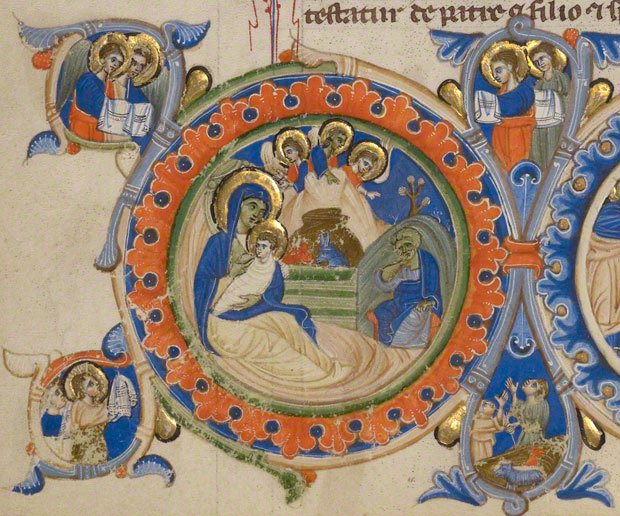 testatur de patre ⁊ filio ⁊ sp